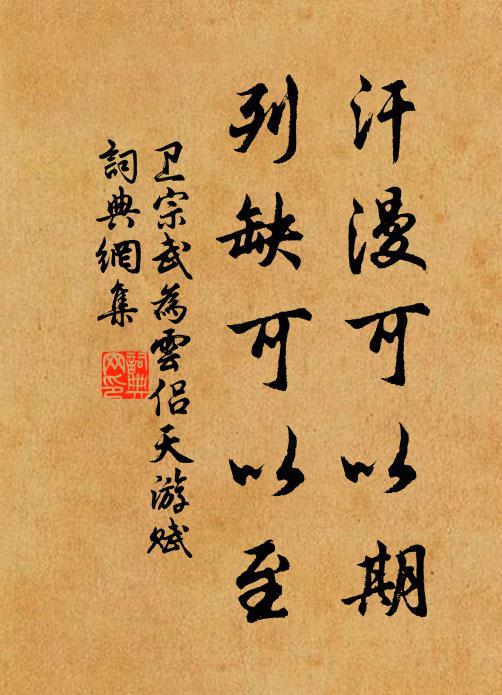 汗漫可以期
列缺可以至
卫宗武為雲侣天游賦
詞典網集
詞典网印